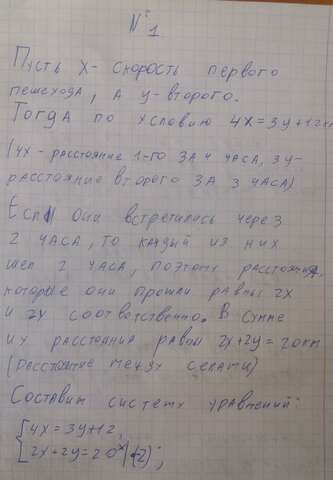 №1
Пусть x - скорость первого
пешехода, а y - второго.
Тогда по условию 4x=3y+12км
(4x - расстояние 1-го за 4 часа, 3y -
расстояние второго за 3 часа)
Если они встретились через
2 часа, то каждый из них
шел 2 часа, поэтому расстояния,
которые они прошли равны 2x
и 2y соответственно. В сумме
их расстояния равны 2x+2y=20км
(расстояние между селами)
Составим систему уравнений:
{4x=3y+12,
2x+2y=20 |x(-2);